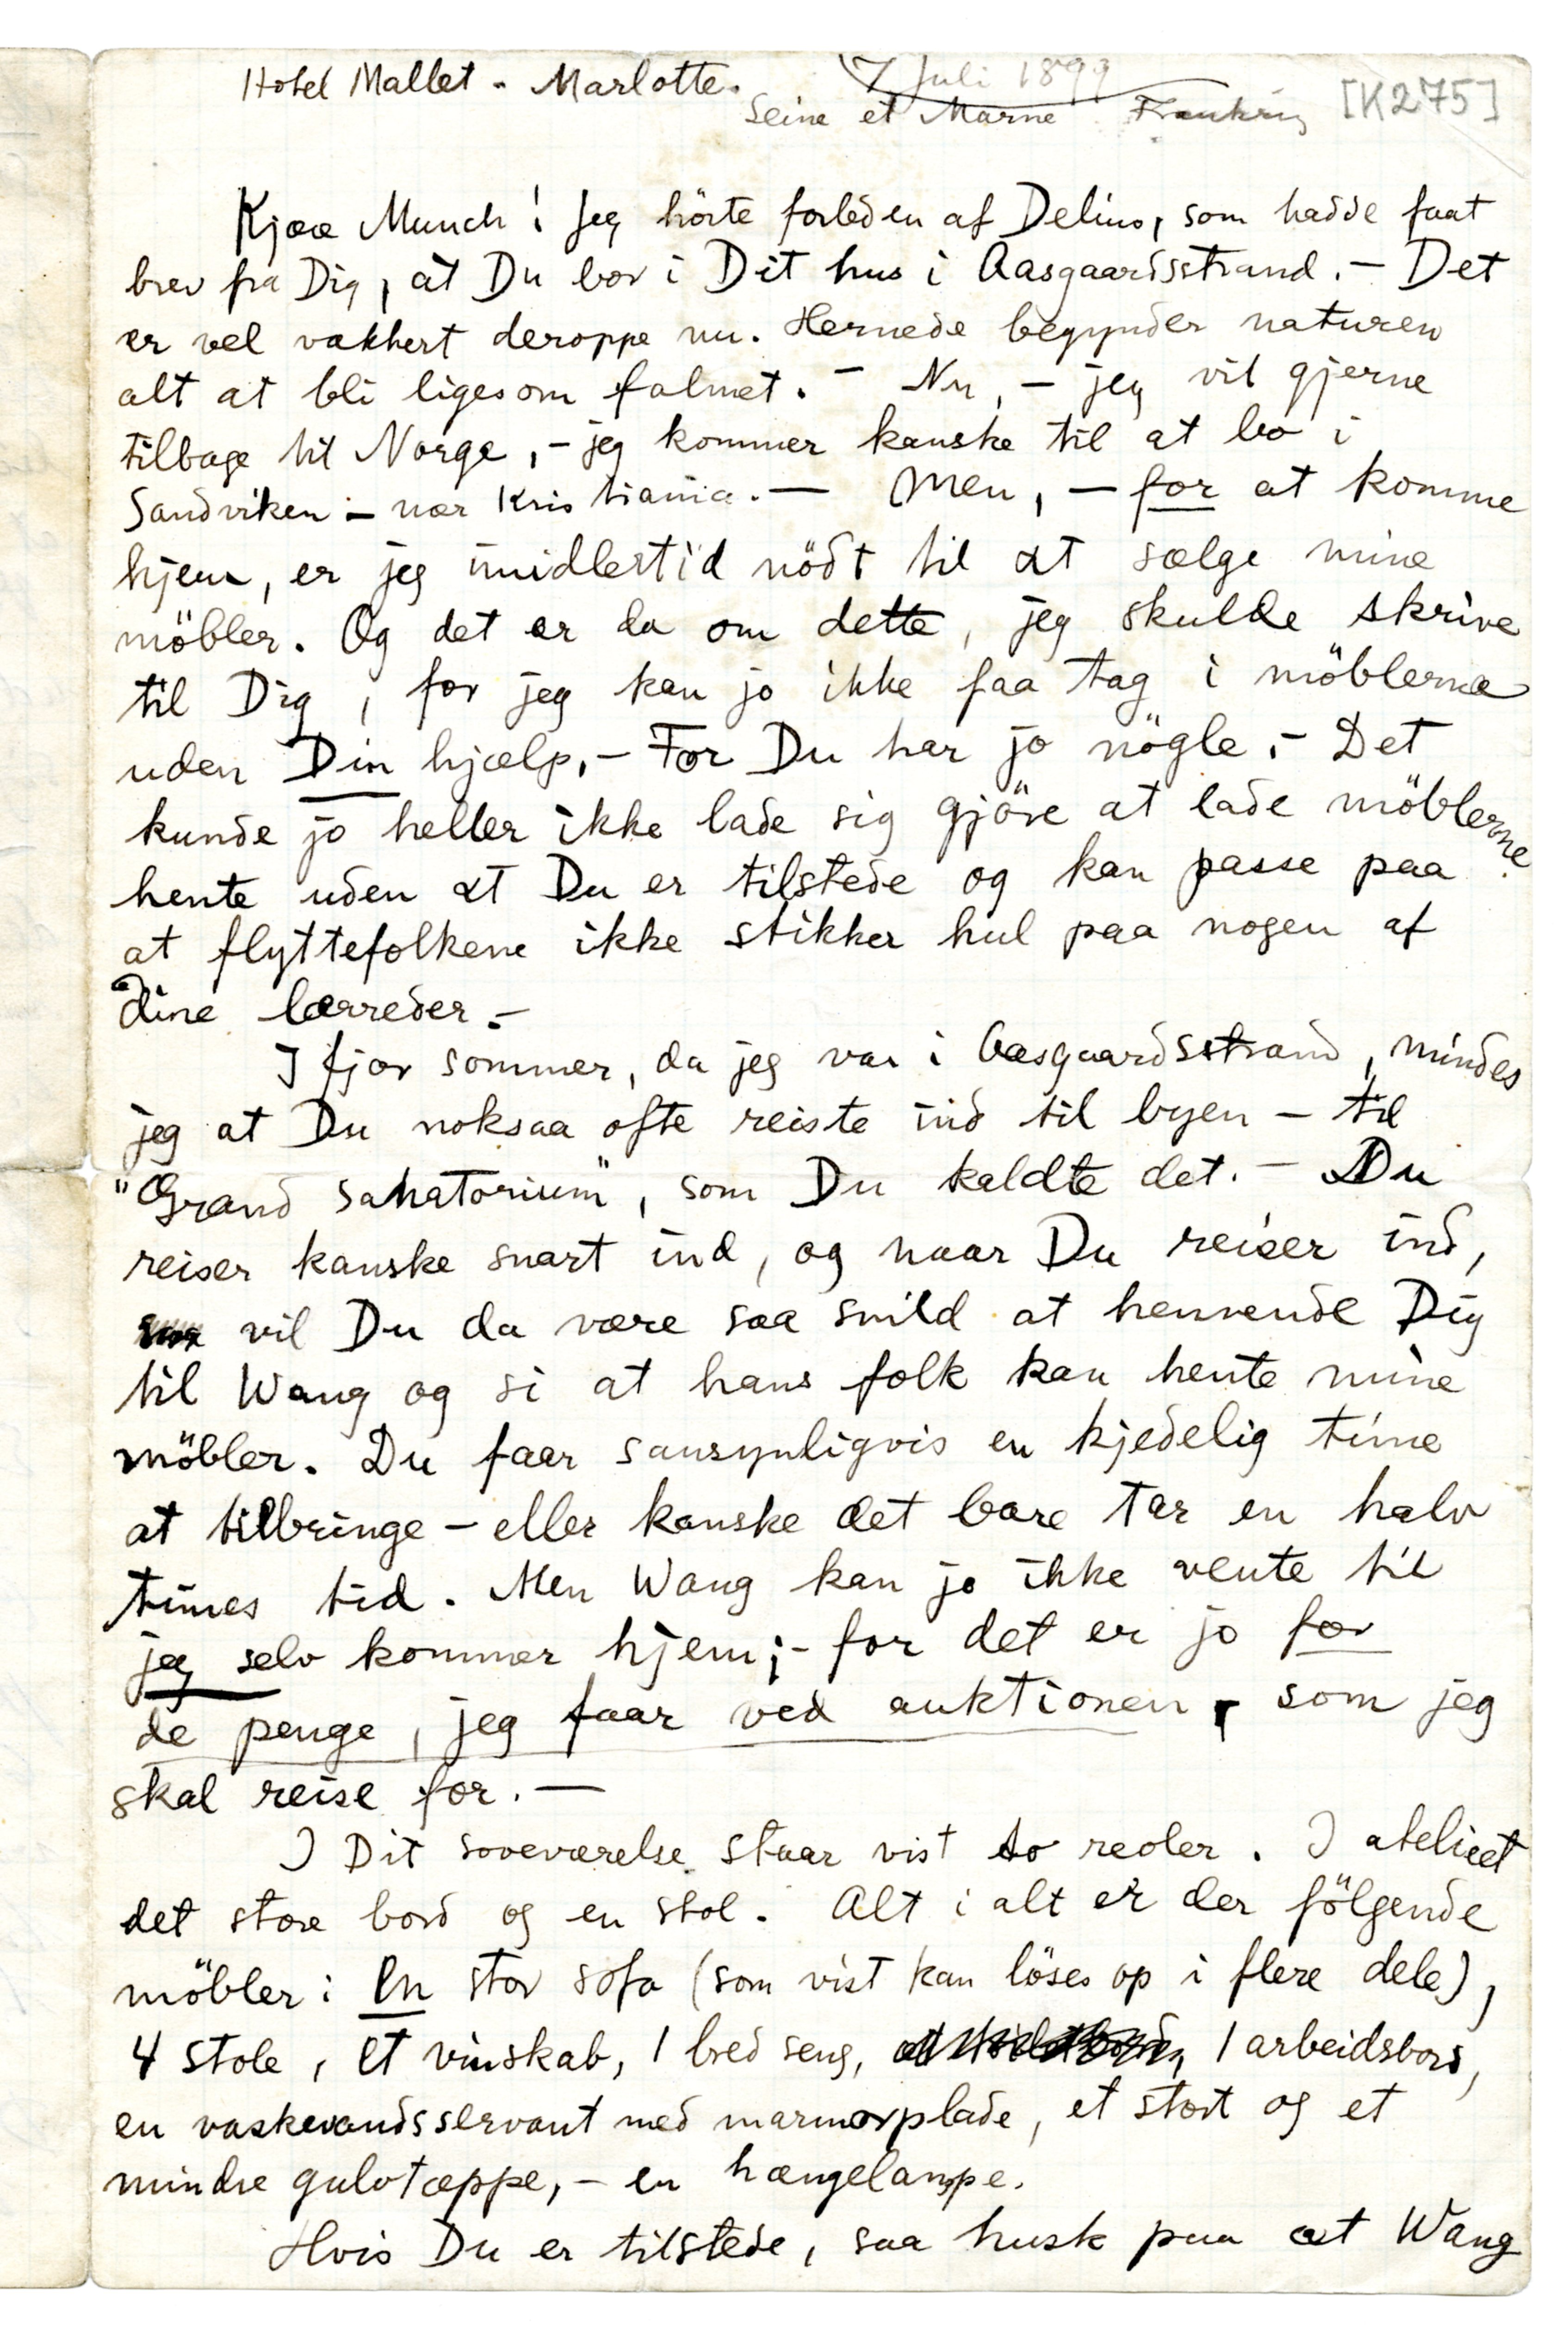 Hotel Mallet - Marlotte.
7 Juli 1899
Seine et Marne Frankrig
[K275]
Kjære Munch! Jeg hörte forleden af Delius, som hadde faat
brev fra Dig, at Du bor i Dit hus i Aasgaardsstrand. – Det
er vel vakkert deroppe nu. Hernede begynder naturen
alt at bli ligesom falmet. – Nu, – jeg vil gjerne
tilbage til Norge, – jeg kommer kanske til at bo i
Sandviken – nær Kristiania. – Men, – for at komme
hjem, er jeg imidlertid nödt til at sælge mine
möbler. Og det er da om dette, jeg skulde skrive
til Dig, for jeg kan jo ikke faa tag i möblerne
uden Din hjælp, – For Du har jo nögle, – Det
kunde jo heller ikke lade sig gjöre at lade möblerne
hente uden at Du er tilstede og kan passe paa
at flyttefolkene ikke stikker hul paa nogen af
dine lærreder. –
I fjor sommer, da jeg var i Aasgaardsstrand, mindes
jeg at Du noksaa ofte reiste ind til byen – til
"Grand sanatorium", som Du kaldte det. – Du
reiser kanske snart ind, og naar Du reiser ind,
vil Du da være saa snild at henvende Dig
til Wang og si at hans folk kan hente mine
möbler. Du faar sansynligvis en kjedelig time
at tilbringe – eller kanske det bare tar en halv
times tid. Men Wang kan jo ikke vente til
jeg selv kommer hjem; – for det er jo for
de penge, jeg faar ved auktionen, som jeg
skal reise for. –
I Dit soveværelse staar vist to reoler. I atelieet
det store bord og en stol. Alt i alt er der fölgende
möbler: En stor sofa (som vist kan löses op i flere dele),
4 stole, et vinskab, 1 bred seng, 1 arbeidsbord,
en vaskevandsservant med marmorplade, et stort og et
mindre gulvtæppe, – en hængelampe.
Hvis Du er tilstede, saa husk paa at Wang